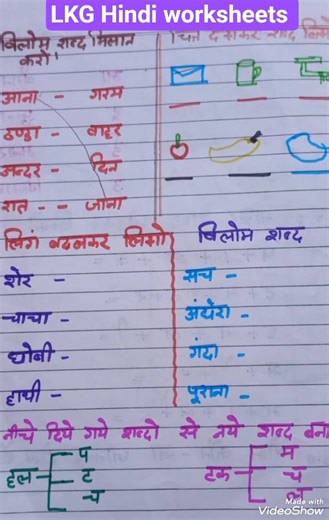 LKG Hindi worksheets
विलोम शब्द मिलान
करो।
आना - गरम
ठण्डा - बाहर
अन्दर - दिन
रात - - जाना
लिंग बदलकर लिखो
शेर -
चाचा -
धोबी -
हाथी -
विलोम शब्द
सच -
अंधेरा -
गंदा -
पूराना -
नीचे दिये गये शब्दो से नये शब्द बना
प
ट
च
टक
म
च
Made with